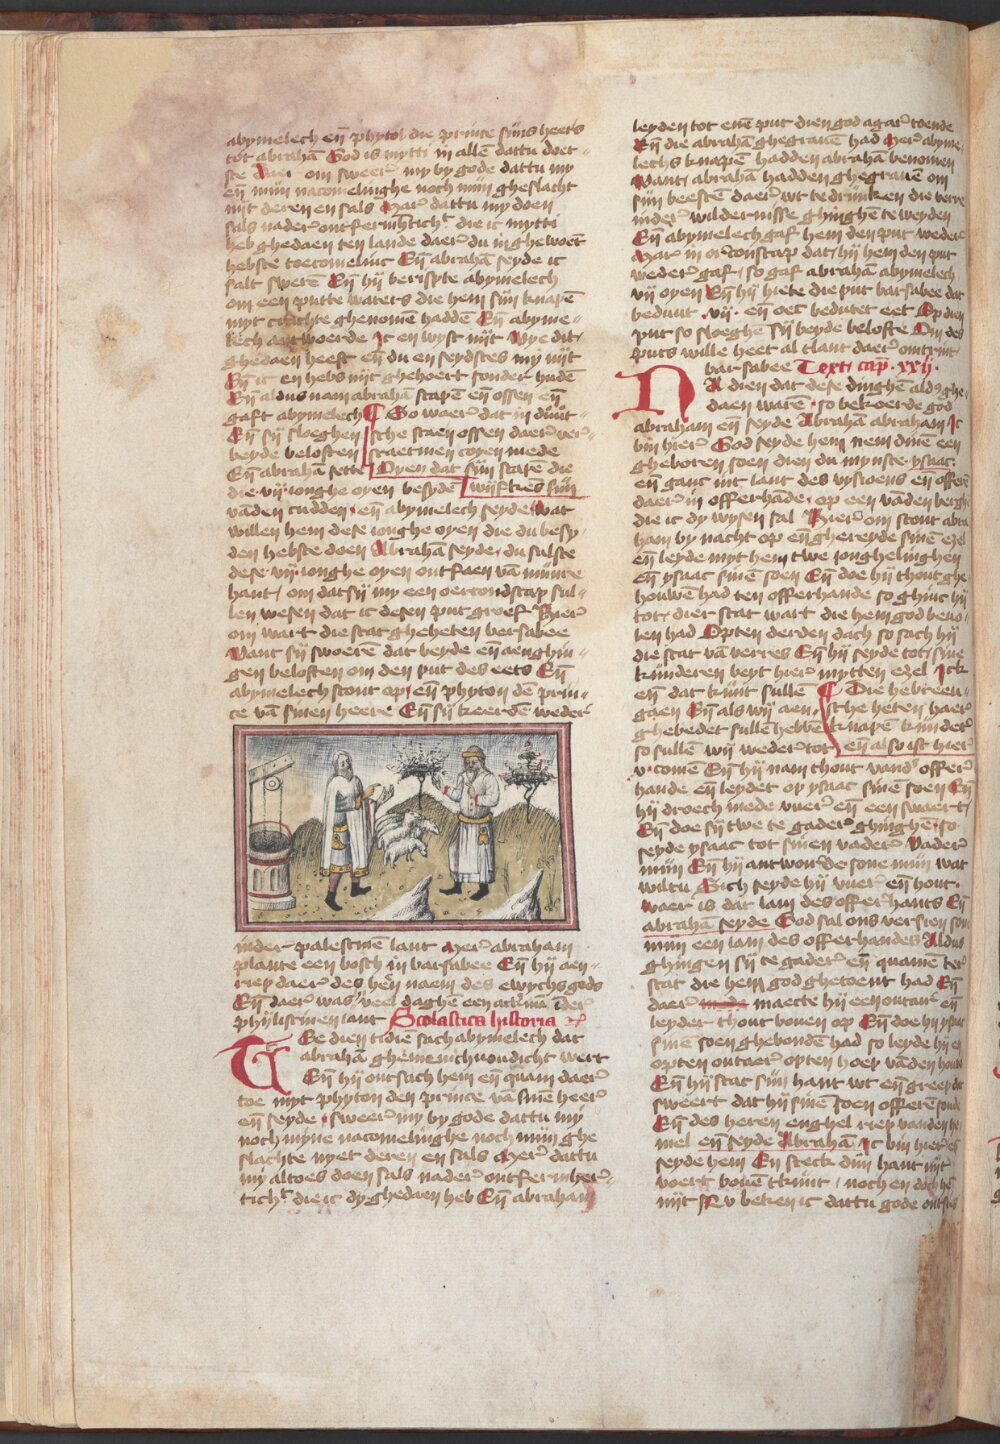 abymelech en̄ phytol die prince sijns heers
tot abrahā God is mytti in allē dattu doet
ste Daer om sweer my by gode dattu my
en̄ mijn nacomelinghe noch mijn gheslacht
nijt deren en sals Mar dattu my doen
sals nader ontfermhticht die ic mytti
heb ghedaen ten lande daer du in ghewoēt
hebste toecomelinc En̄ abrahā seyde ic
salt swerē En̄ hij berispte abymelech
om een putte waters die hem sijn knapē
myt crachte ghenomē haddē En̄ abyme
lech antwoerde Ic en wyst nijt Wye dit
ghedaen heeft en̄ du en seydstes my nijt
En̄ ic en hebs nijt ghehoert sonder hudē
En̄ aldus nam abrahā scapē en̄ ossen en̄
gaft abymelech
En̄ sij sloeghen
beyde beloften
En̄ abrahā sette
So waer dat in duut
sche staen ossen daer ver
staetmen coyen mede
Oyen dat sijn scape die
wijfkes sijn
die vij ionghe oyen besydē
vāden cudden en̄ abymelech seyde wat
willen hem dese ionghe oyen die du besy
den hebste doen Abrahā seyde du salste
dese vij ionghe oyen ontfaen vā mijnre
hant om dat sij my een oercondscap sul
len wesen dat ic desen put groef Hier
om wart die stat gheheten bersabee
Want sij swoerē dat beyde en̄ aenghin
gen beloften om den put des eets En̄
abymelech stont op en̄ phyton dē prin
ce vā sinen heere En̄ sij keerdē weder
inder palestinē lant Mer abraham
plante een bosch in barsabee En̄ hij aen
riep daer des hēn naem des ewychs gods
En̄ daer was veel daghe een ackermā der
phylistinen lant Scolastica historia
Te dien tidiē sach abymelech dat
abrahā ghemeinichuondicht wert
En̄ hij ontsach hem en̄ quam daer
toe myt phyton den prince vā sinē heer
en̄ seyde sweer my by gode dattu my
noch myne nacomelinghe noch mijn ghe
slachte nyet deren en sals Mer dattu
my altoes doen sals nader ontfermher
ticht die ic dy ghedaen heb En̄ abraham
leyden tot enē put dien god agar toende
En̄ die abrahā ghegrauē had Mer abyme
lechs knapē hadden abrahā benomen
Want abrahā hadden ghegrauē om
sijn beestē daer wt te drinken die verre
inder wildernisse ghinghē te weyden
En̄ abymelech gaf hem den put weder
Mar in orconscap dat hij hem den put
weder gaf so gaf abrahā abymelech
vij oyen En̄ hij hiete die put barsabee dat
beduut vij en̄ oec bedutet eet Op dien
put so sloeghē sij beyde belofte Om des
puts wille heet al tlant daer omtrint
barsabee Text cap xxij
Na dien dat dese dinghē aldus ghe
daen warē so bekoerde god
abraham en̄ seyde Abrahā abraham Ic
bin hier God seyde hem nem dinē een
gheboren soen dien du mynste ysaac
en̄ ganc int lant des vysioens en̄ offerē
daer in offerhāde op een vāden bergh
die ic dy wysen sal Hier om stont abra
ham by nacht op en̄ ghereyde sinē ezel
en̄ leyde myt hem twe ionghelinghen
En̄ ysaac sinē soen En̄ doe hij thout ghe
houwē had ten offerhande so ghinc hij
tot dier stat wart die hem god beuo
len had Opten derden dach so sach hij
die stat vā verres En̄ hij seyde tot sine
kinderen beyt hier mytten ezel Ick
en̄ dat kint sullē
gaen En̄ als wij aen
ghebedet sullē hebbē
so sullē wij weder tot
Die hebreeu
sche heten haer
knapē kinder
en̄ also ist hier
v comē En̄ hij nam thout vand offer
hande en̄ leydet op ysaac sinē soen En̄
hij droech mede vuer en̄ een swaert
En̄ doe sij twe te gader ghinghē so
seyde ysaac tot sinen vader Vader
mijn En̄ hij antwoirde sone mijn wat
wiltu Sich seyde hij vuer en̄ hout
waer is dat lam des offerhants En̄
abrahā seyde God sal ons versien soen
mijn een lam des offerhandes Aldus
ghingen sij te gader en̄ quamē ter
stat die hem god ghetoent had En̄
daer maecte hij een outaer en̄
leyder thout bouen op En̄ doe hij ysaac
sinē soen ghebondē had so leyde hij en
opten outaer opten hoep vāden houte
En̄ hij stac sijn hant wt en̄ greep dat
sweert dat hij sinē soen offerē soude
En̄ des heren enghel riep vanden he
mel en̄ seyde Abrahā Ic bin hier
seyde hem En steck dijn hant nijt
voert bouē tkint noch en doch hē
nijt Nv beken ic dattu gode ontsies